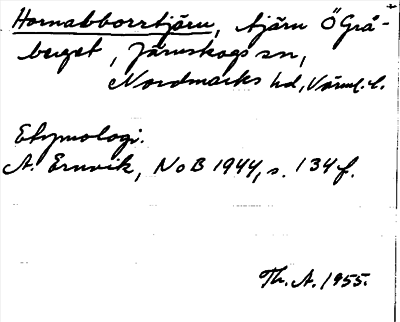 Hornabborrtjärn, tjärn Ö Grå-
berget, Järnskogs sn,
Nordmarks hd, Värml. l.
Etymologi.
A. Ernvik, NoB 1944, s. 134 f.
Th. A. 1955.